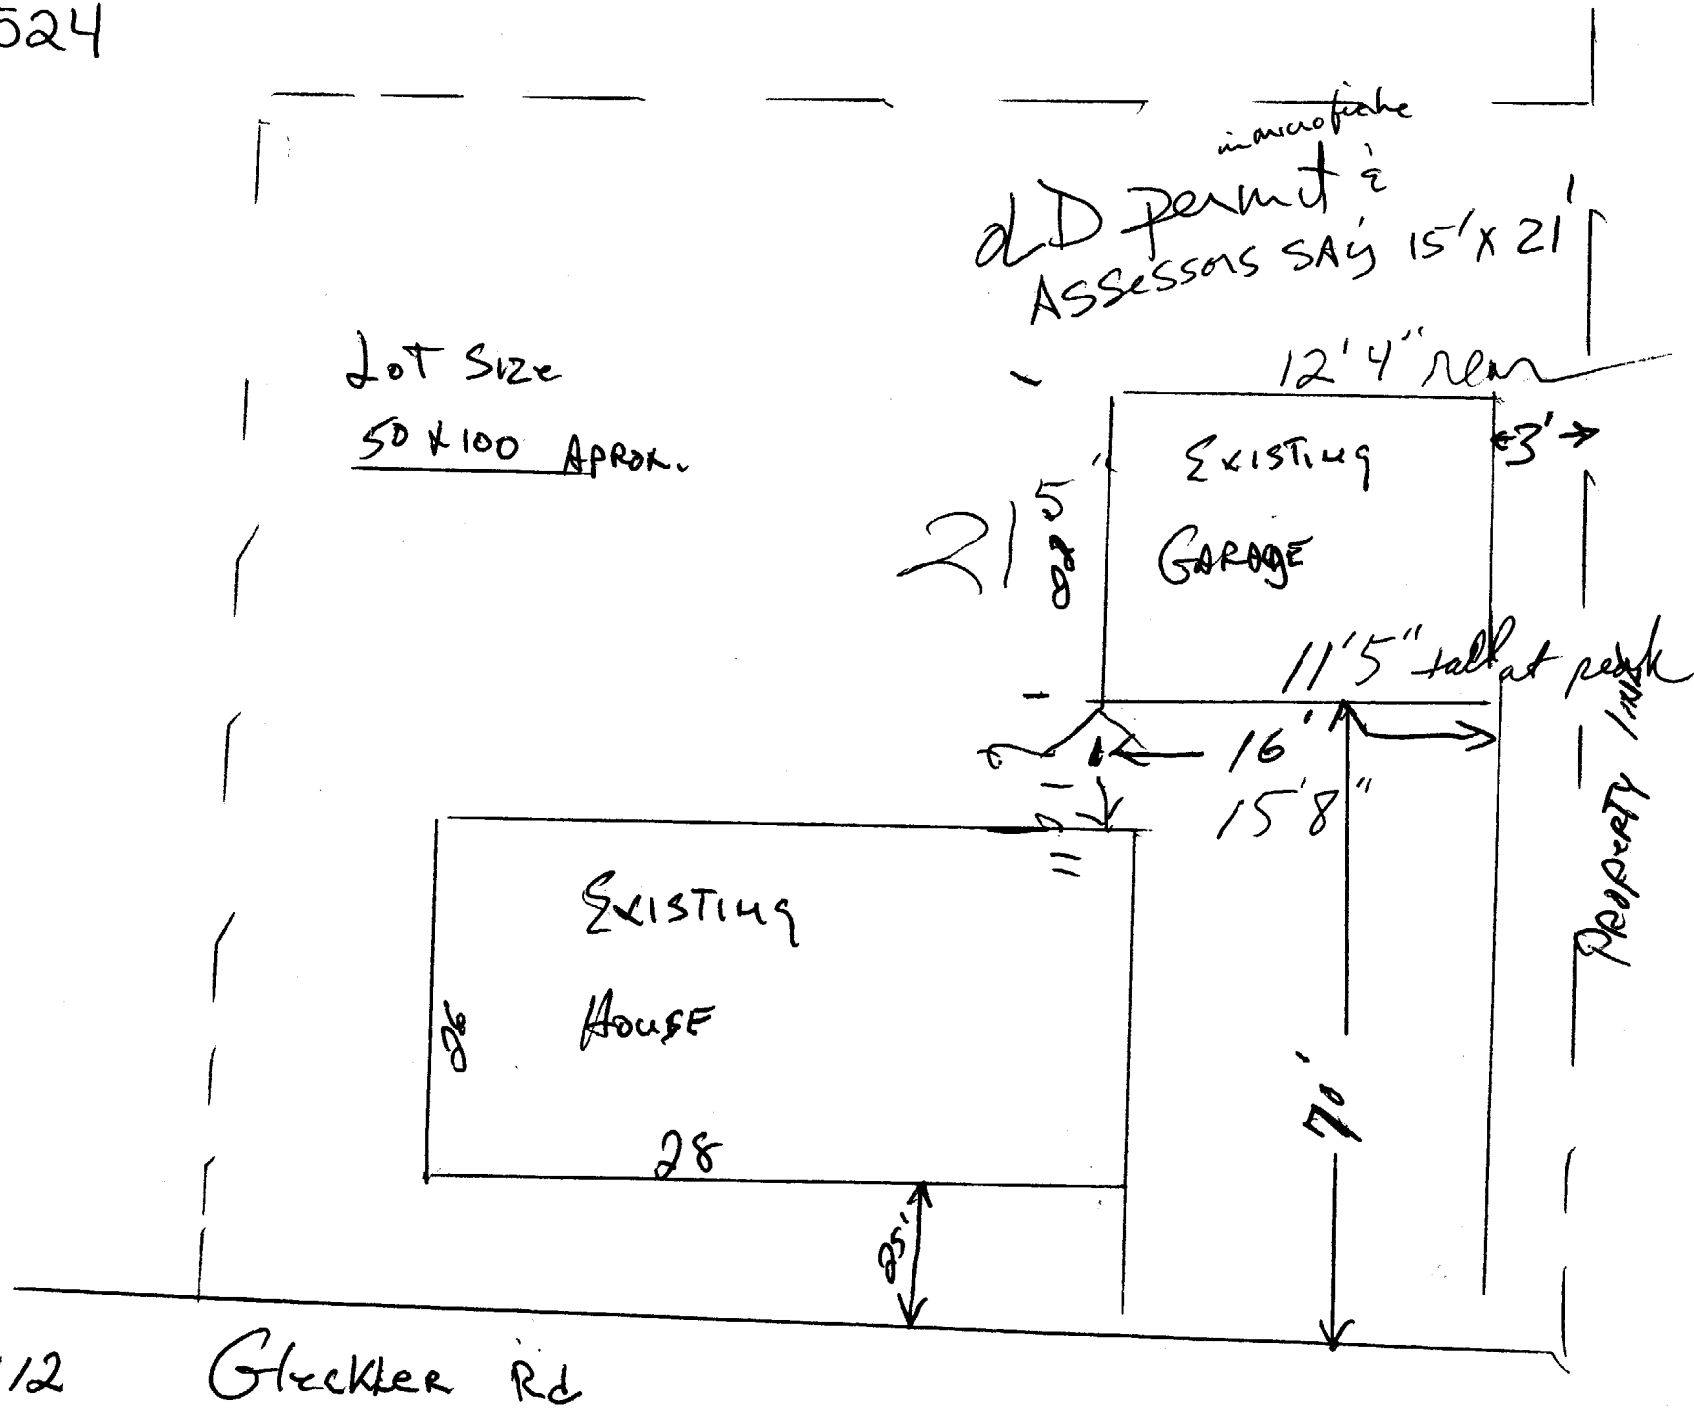 524
in microfiche
OLD permit &
Assessors SAy 15' X 21'
LOT SIZE
50 X 100 APROX.
12'4" rear
3'
EXISTING
GARAGE
21 5
22
11'5" tall at peak
16'
15'8"
PROPERTY LINE
EXISTING
HOUSE
26
28
25'
70'
12 Gleckler Rd